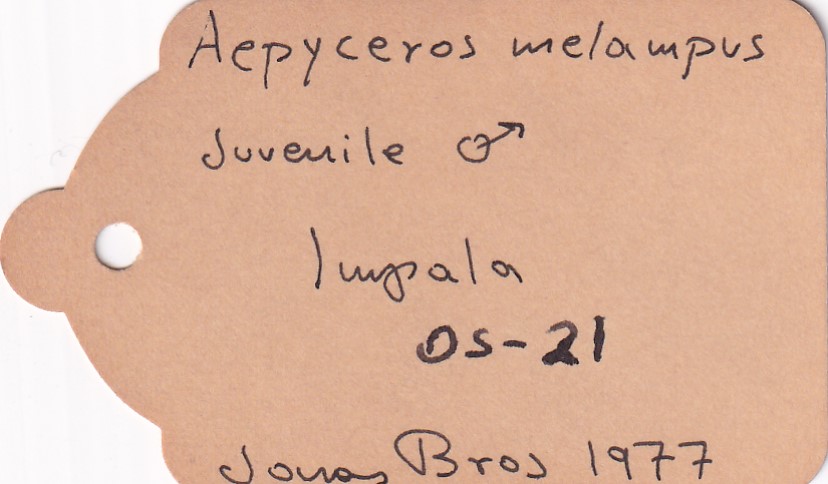 Aepyceros melampus
Juvenile ♂
Impala
OS-21
Jonas Bros 1977